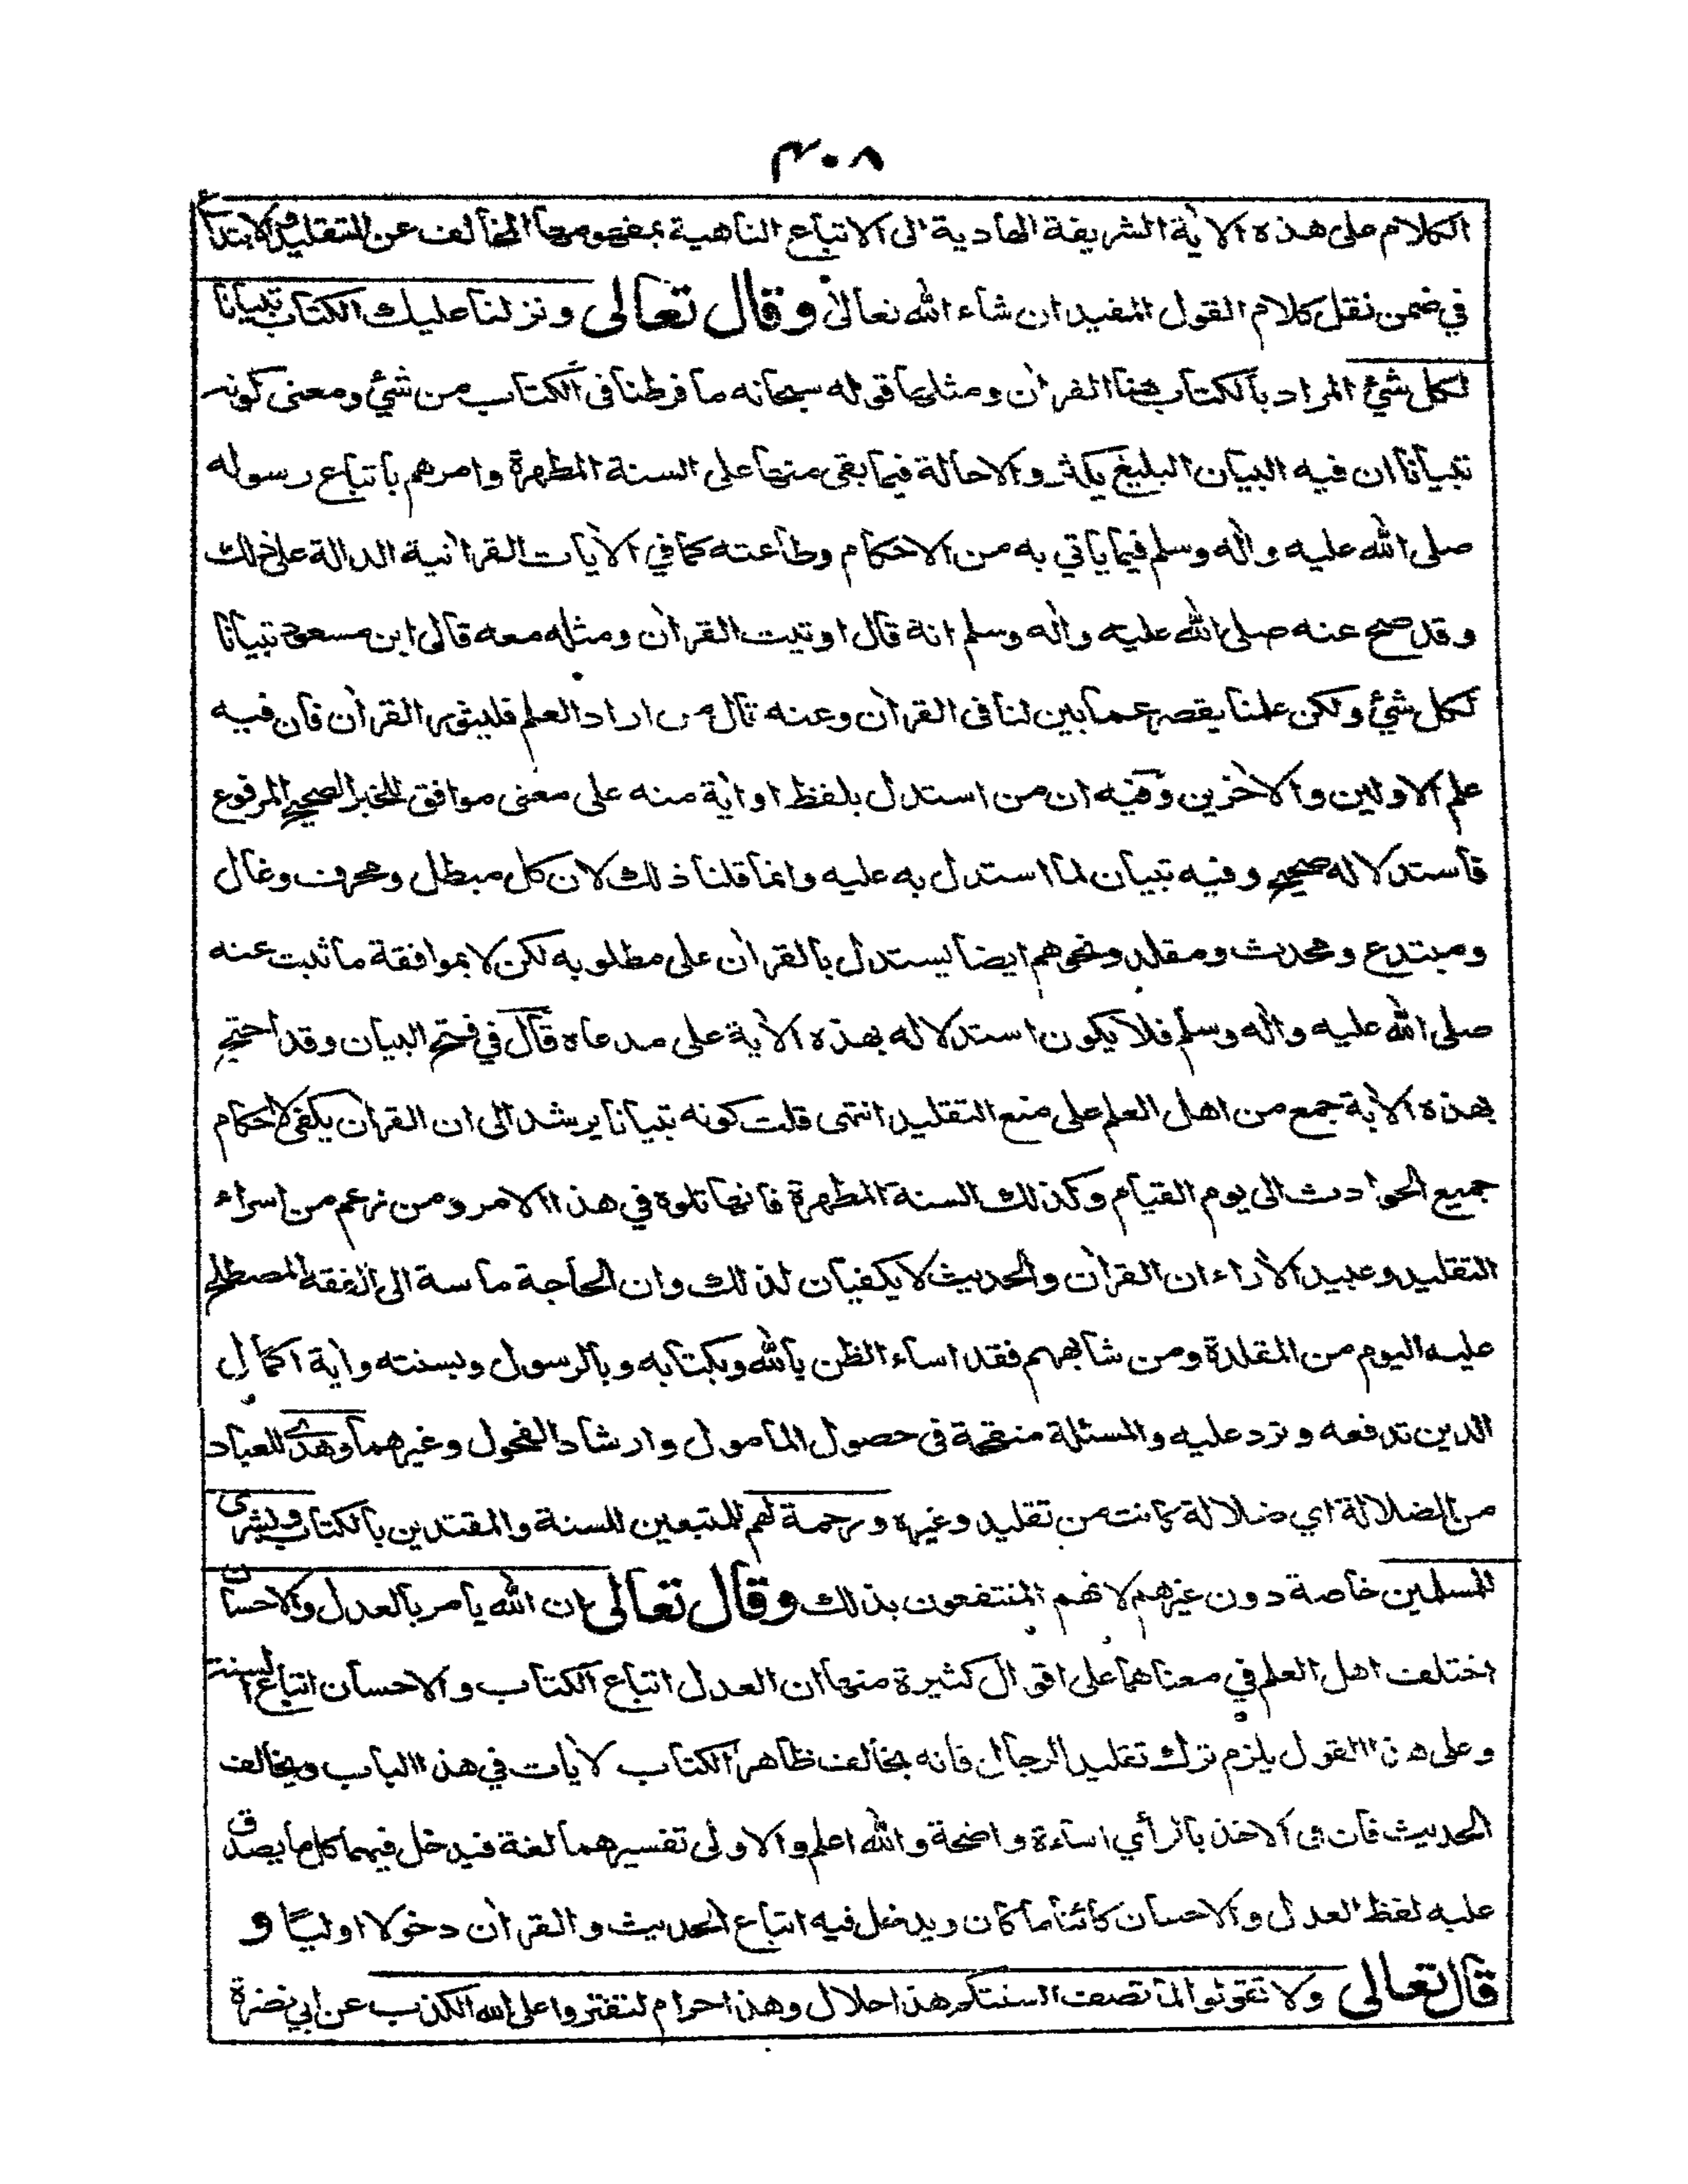 ٣٠٨
الكلام على هذه الاٰية الشريفة الهادية الى الاتباع الناهية بمفهومها المخالف عن التقليد والابتداع
في ضمن نقل كلام القول المفيد ان شاء الله تعالىٰ وقال تعالى ونزلنا عليك الكتاب تبيانا
لكل شئ المراد بالكتاب هنا القراٰن ومثلها قوله سبحانه ما فرطنا فى الكتاب من شئ ومعنى كونه
تبيانا ان فيه البيان البليغ والاحالة فيما بقى منها على السنة المطهرة وامرهم باتباع رسوله
صلى الله عليه واٰله وسلم فيما ياتي به من الاحكام وطاعته كما في الاٰيات القراٰنية الدالة على ذلك
وقد صح عنه صلى الله عليه واٰله وسلم انه قال اوتيت القراٰن ومثله معه قال ابن مسعود تبيانا
لكل شئ ولكن علمنا يقصر عما بين لنا فى القراٰن وعنه قال من اراد العلم فليثور القراٰن فان فيه
علم الاولين والاٰخرين وفيه ان من استدل بلفظ او اٰية منه على معنى موافق للخبر الصحيح المرفوع
فاستدلاله صحيح وفيه تبيان لما استدل به عليه وانما قلنا ذلك لان كل مبطل ومحرف وغال
ومبتدع ومحدث ومقلد ونحوهم ايضا يستدل بالقراٰن على مطلوبه لكن لا بموافقة ما ثبت عنه
صلى الله عليه واٰله وسلم فلا يكون استدلاله بهذه الاٰية على مدعاه قال في فتح البيان وقد احتج
بهذه الاٰية جمع من اهل العلم على منع التقليد انتهى قلت كونه تبيانا يرشد الى ان القراٰن يكفى لاحكام
جميع الحوادث الى يوم القيام وكذلك السنة المطهرة فانها تلوه في هذا الامر ومن زعم من اسراء
التقليد وعبيد الاٰراء ان القراٰن والحديث لا يكفيان لذلك وان الحاجة ماسة الى الفقه المصطلح
عليه اليوم من المقلدة ومن شابههم فقد اساء الظن بالله وبكتابه وبالرسول وبسنته واٰية اكمال
الدين تدفعه وترد عليه والمسئلة منقحة فى حصول المامول وارشاد الفحول وغيرهما وهدى للعباد
من الضلالة اي ضلالة كانت من تقليد وغيره ورحمة لهم للمتبعين للسنة والمقتدين بالكتاب وبشرى
للمسلمين خاصة دون غيرهم لانهم المنتفعون بذلك وقال تعالى ان الله يامر بالعدل والاحسان
اختلف اهل العلم في معناهما على اقوال كثيرة منها ان العدل اتباع الكتاب والاحسان اتباع السنة
وعلى هذا القول يلزم ترك تقليد الرجال فانه يخالف ظاهر الكتاب لاٰيات في هذا الباب ويخالف
الحديث فان في الاخذ بالرأي اساءة واضحة والله اعلم والاولى تفسيرهما لغة فيدخل فيهما كل ما يصدق
عليه لفظ العدل والاحسان كائنا ما كان ويدخل فيه اتباع الحديث والقراٰن دخولا اوليًا و
قال تعالى ولا تقولوا لما تصف السنتكم هذا حلال وهذا حرام لتفتروا على الله الكذب عن ابي نضرة